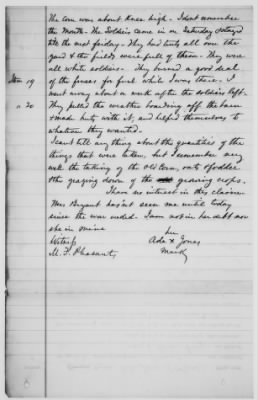 The corn was about Knee high - I dont remember
the Month - The Soldiers came in on Saturday & stayed
till the next friday - They had tents all over the
yard & the fields were full of them - They were
all white soldiers - They burned a good deal
Item 19 of the fences for fuel while I was there - I
went away about a week after the soldiers left.
" 20 They pulled the weather boarding off the barn
& made huts with it, and helped themselves to
whatever they wanted.
I cant tell any thing about the quantities of the
things that were taken, but I remember very
well the taking of the old corn, oats & fodder
& the grazing down of the growing crops.
I have no interest in this claim.
Mrs Bryant hasn't seen me until today
since the war ended. I am not in her debt nor
she in mine
Witness her
Ada x Jones
M. F. Pleasants mark